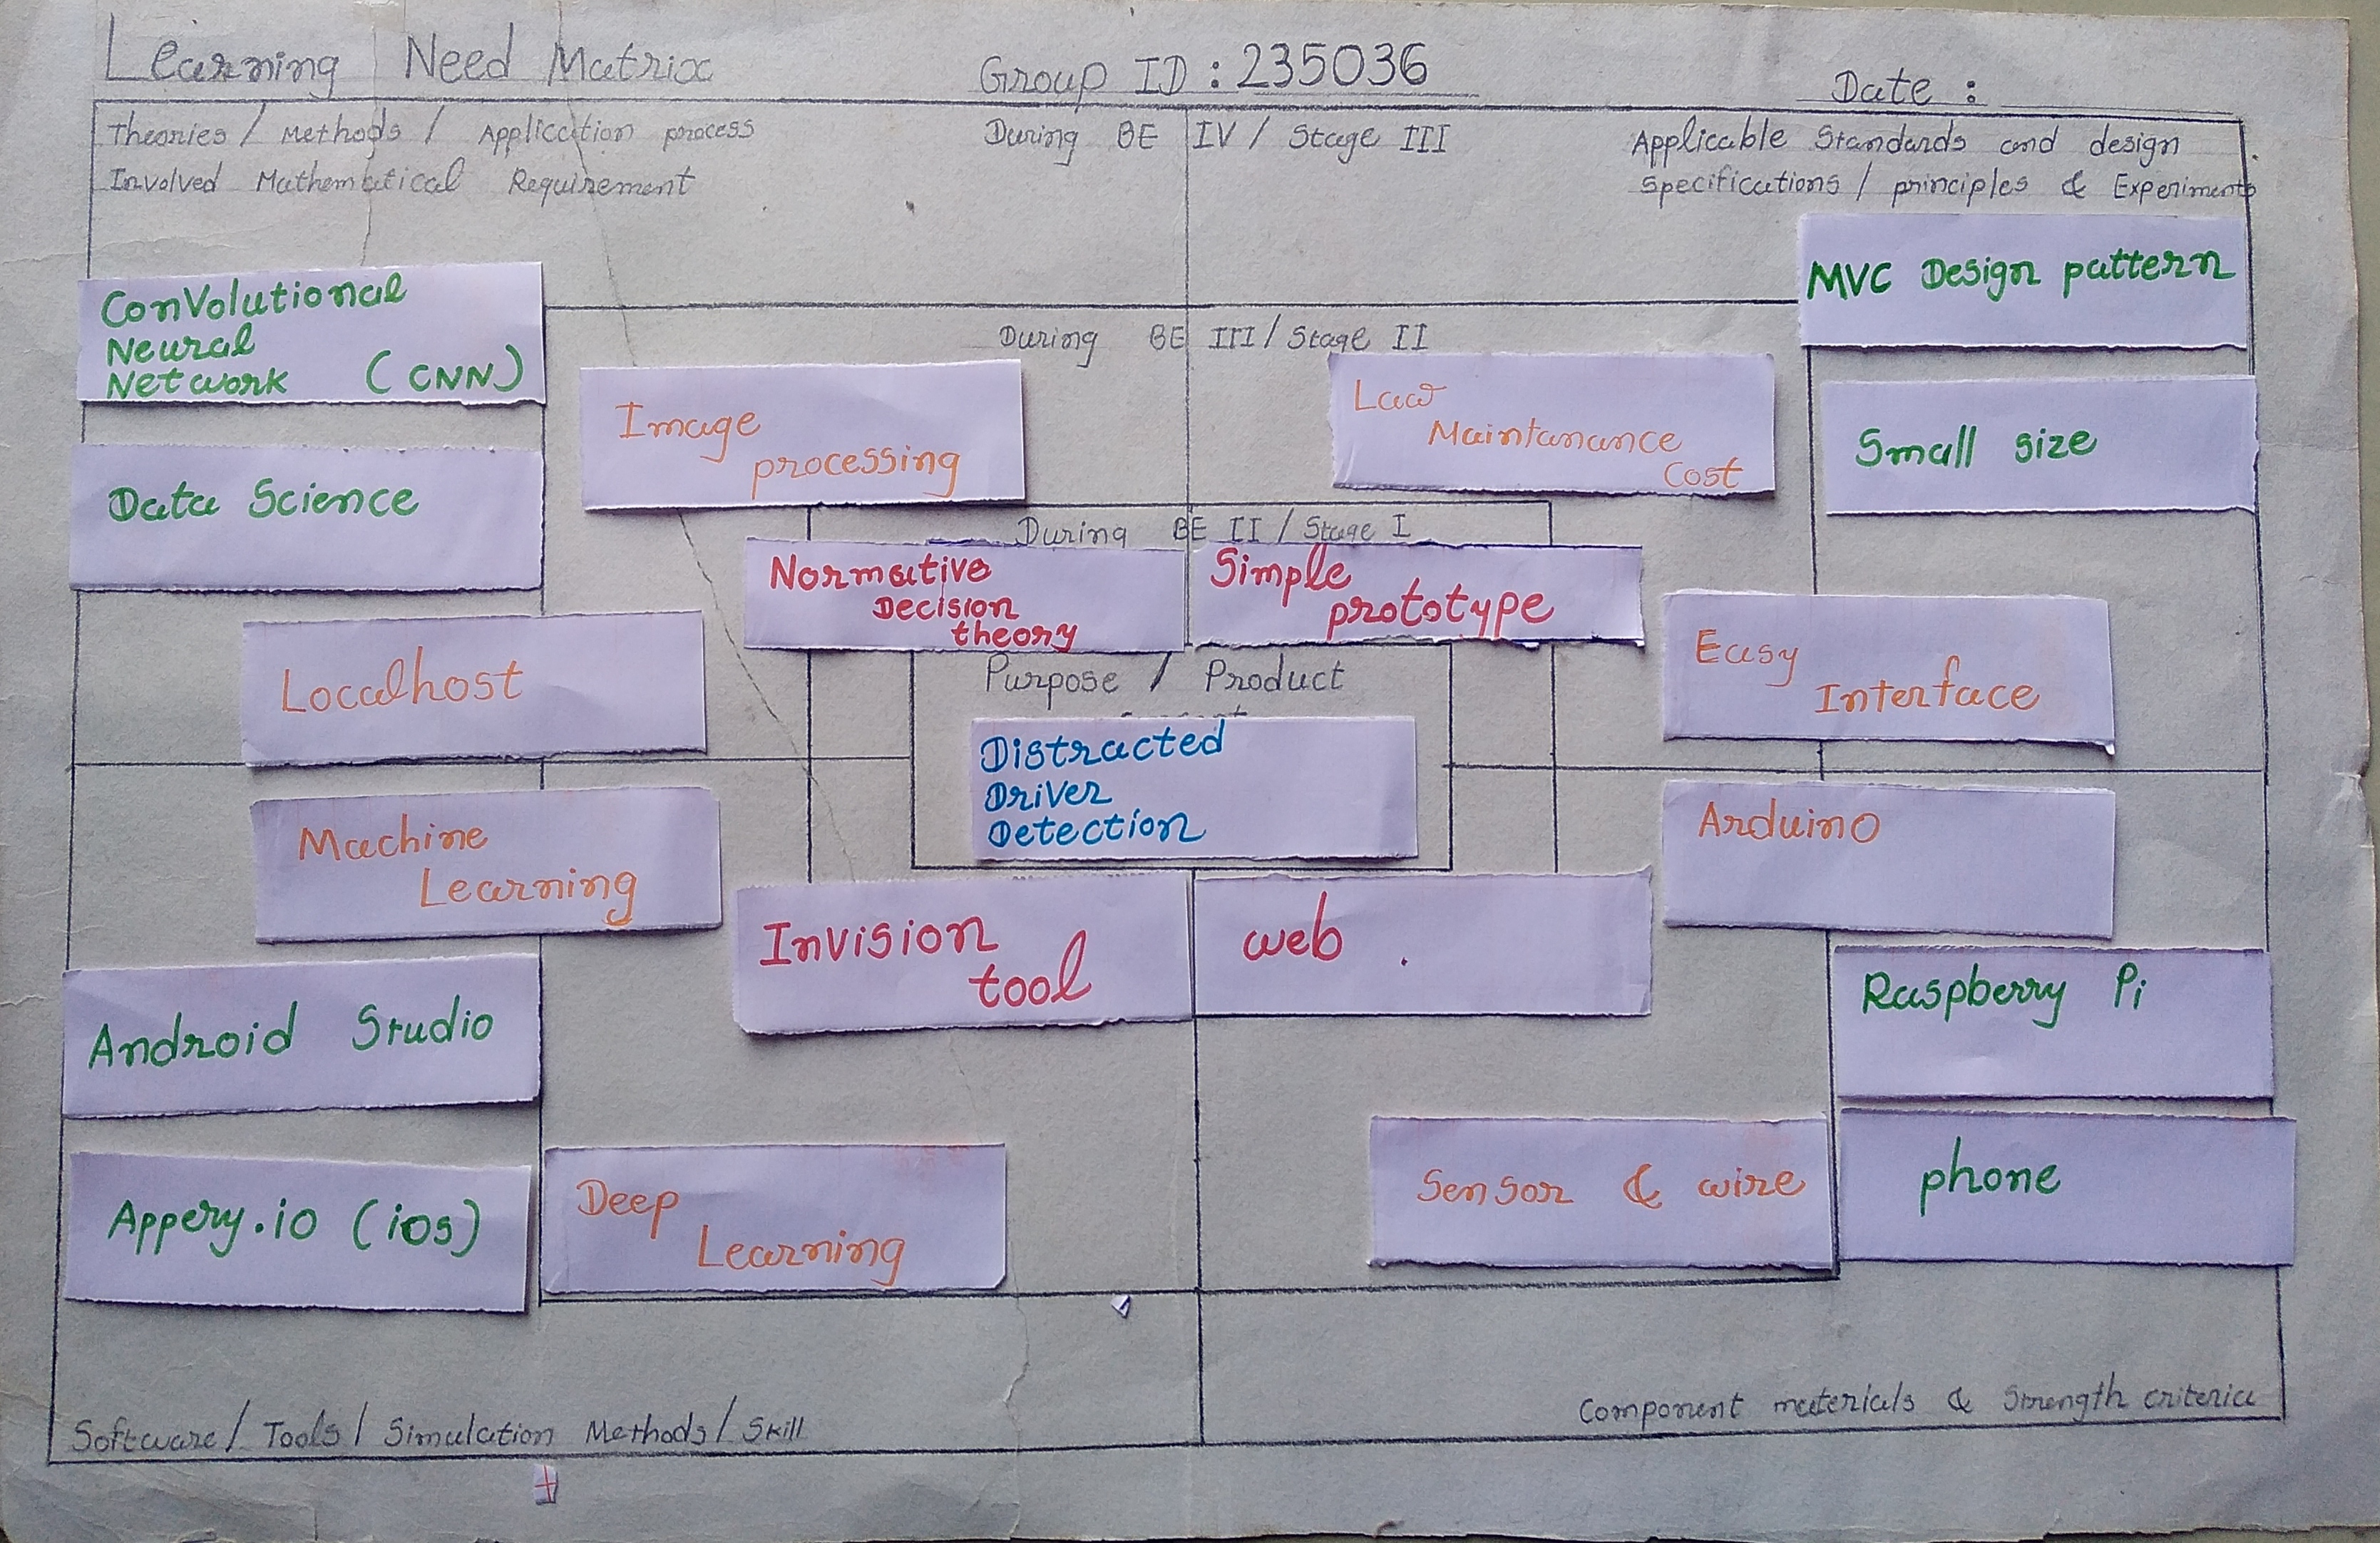 Learning Need Matrix
Group ID : 235036
Date :
Theories / Methods / Application process
Involved Mathematical Requirement
During BE IV / Stage III
Applicable Standards and design
specifications / principles & Experiments
MVC Design pattern
ConVolutional
Neural
Network (CNN)
During BE III / Stage II
Image
processing
Low
Maintanance
Cost
Small size
Data Science
During BE II / Stage I
Normative
Decision
theory
Simple
prototype
Localhost
Easy
Interface
Purpose / Product
Distracted
Driver
Detection
Machine
Learning
Arduino
Invision
tool
web .
Android Studio
Raspberry Pi
Appery.io (ios)
Deep
Learning
Sensor & wire
phone
Software / Tools / Simulation Methods / Skill
Component materials & Strength criteria